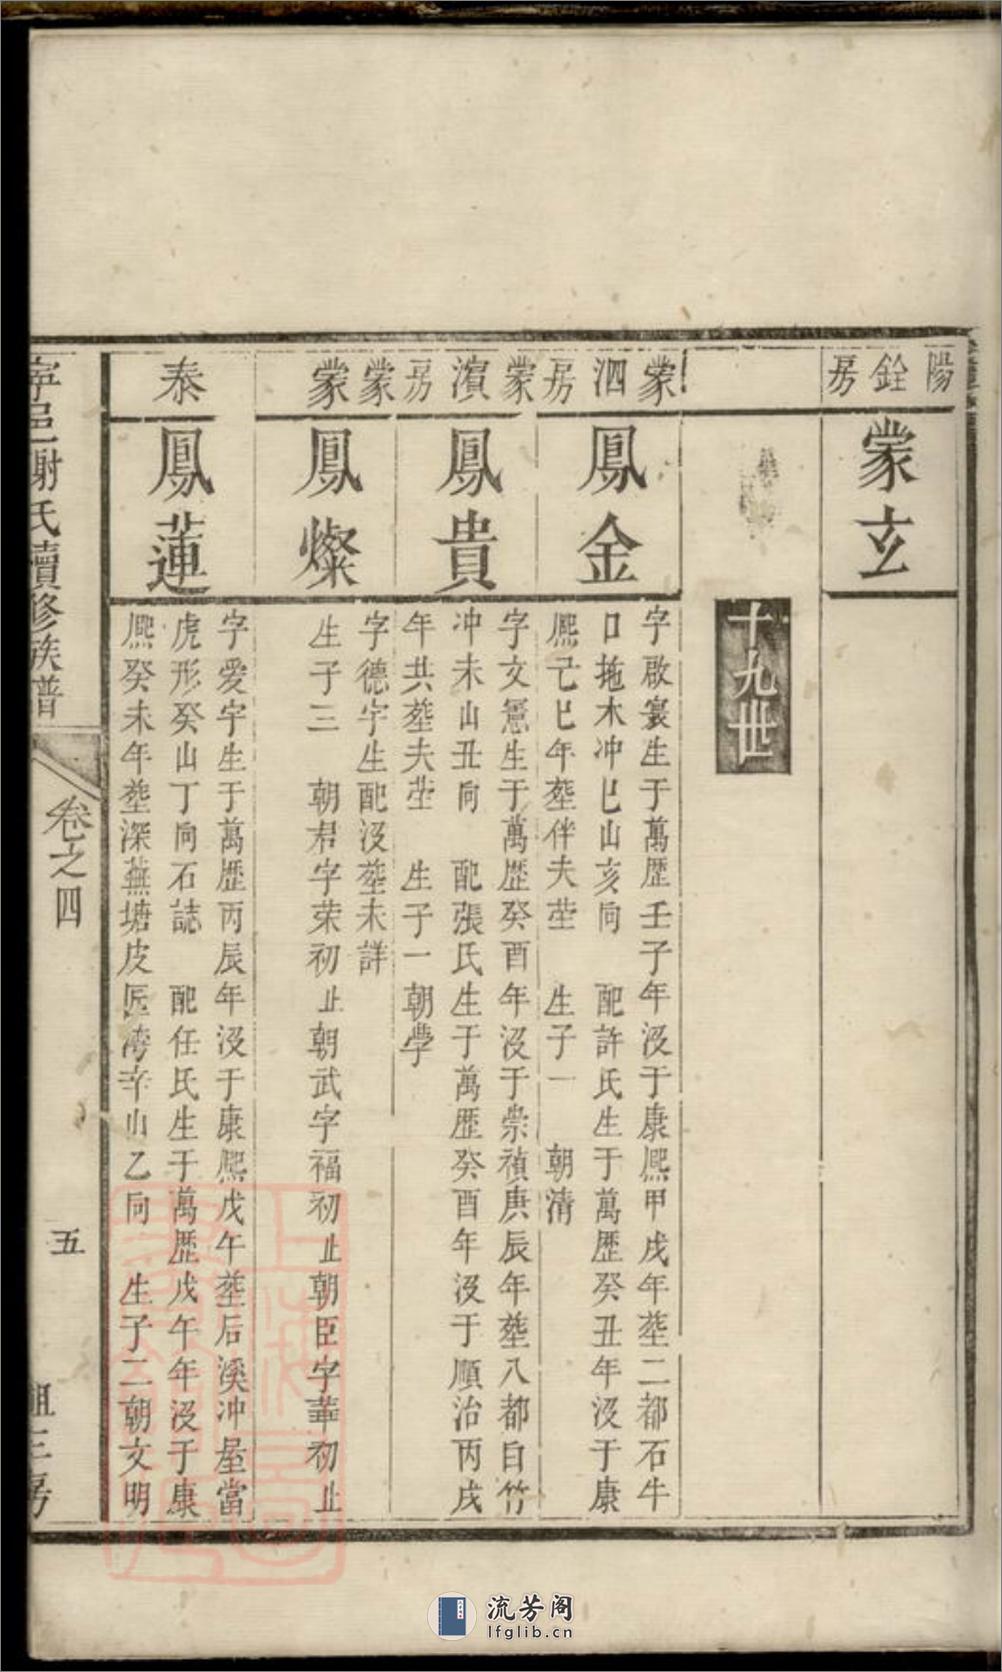 陽銓房
蒙玄
十九世
蒙泗房
鳳金
字啟寰生于萬歷壬子年沒于康熙甲戌年塟二都石牛
口拖木冲巳山亥向　配許氏生于萬歷癸丑年沒于康
熙己巳年塟伴夫塋　生子一　朝清
蒙濱房
鳳貴
字文憲生于萬歷癸酉年沒于崇禎庚辰年塟八都白竹
冲未山丑向　配張氏生于萬歷癸酉年沒于順治丙戌
年共塟夫塋　生子一朝學
蒙蒙
鳳燦
字德宇生配沒塟未詳
生子三　朝君字荣初止朝武字福初止朝臣字華初止
泰
鳳蓮
字爱宇生于萬歷丙辰年沒于康熙戊午塟后溪冲屋當
虎形癸山丁向石誌　配任氏生于萬歷戊午年沒于康
熙癸未年塟深蕪塘皮匠湾辛山乙向　生子二朝文明
寧邑謝氏續修族譜
卷之四
五
三房
流芳阁
lfglib.cn